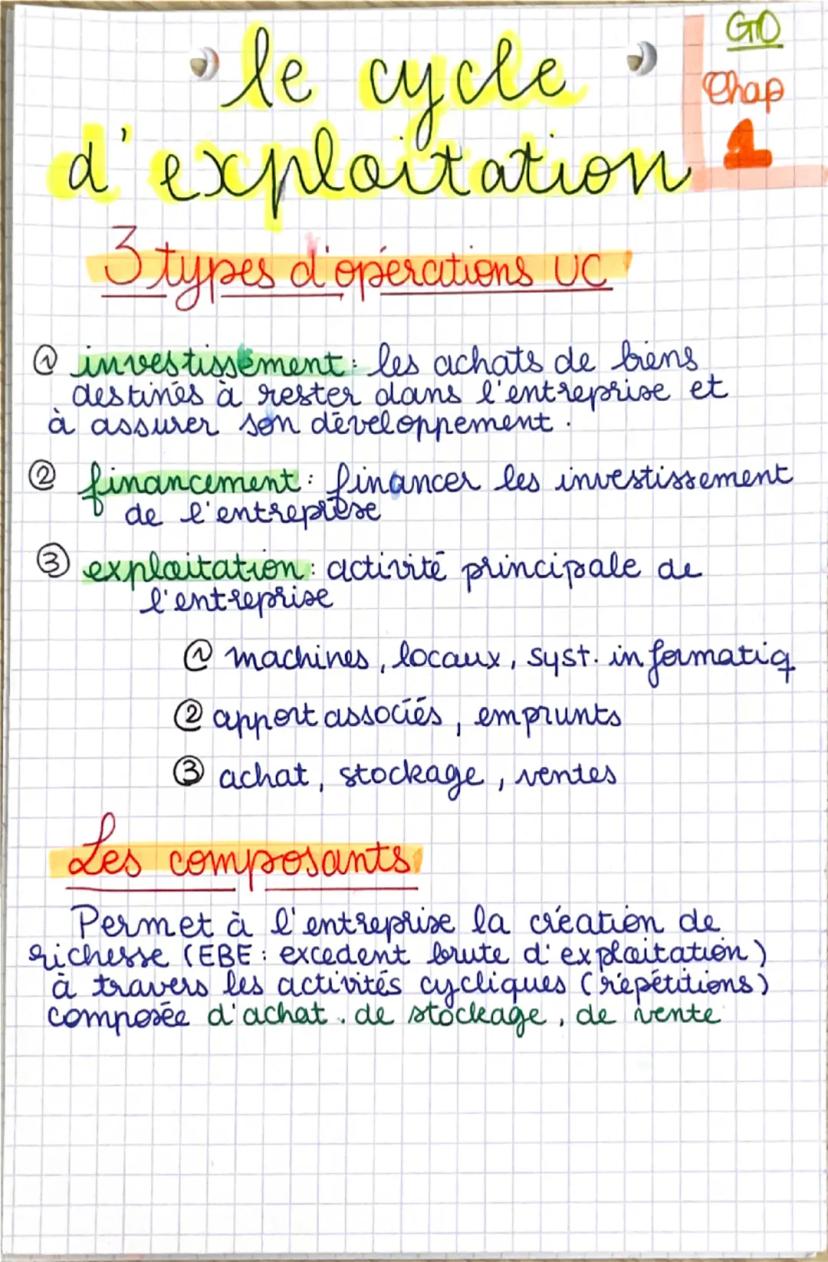 GTO
Chap
1
le cycle
d'exploitation
3 types d'opérations UC
① investissement : les achats de biens
destinés à rester dans l'entreprise et
à assurer son développement.
② financement : financer les investissement
de l'entreprise
③ exploitation : activité principale de
l'entreprise
① machines, locaux, syst. informatiq
② apport associés, emprunts
③ achat, stockage, ventes
Les composants
Permet à l'entreprise la création de
richesse (EBE : excedent brute d'exploitation)
à travers les activités cycliques (répétitions)
composée d'achat. de stockage, de vente